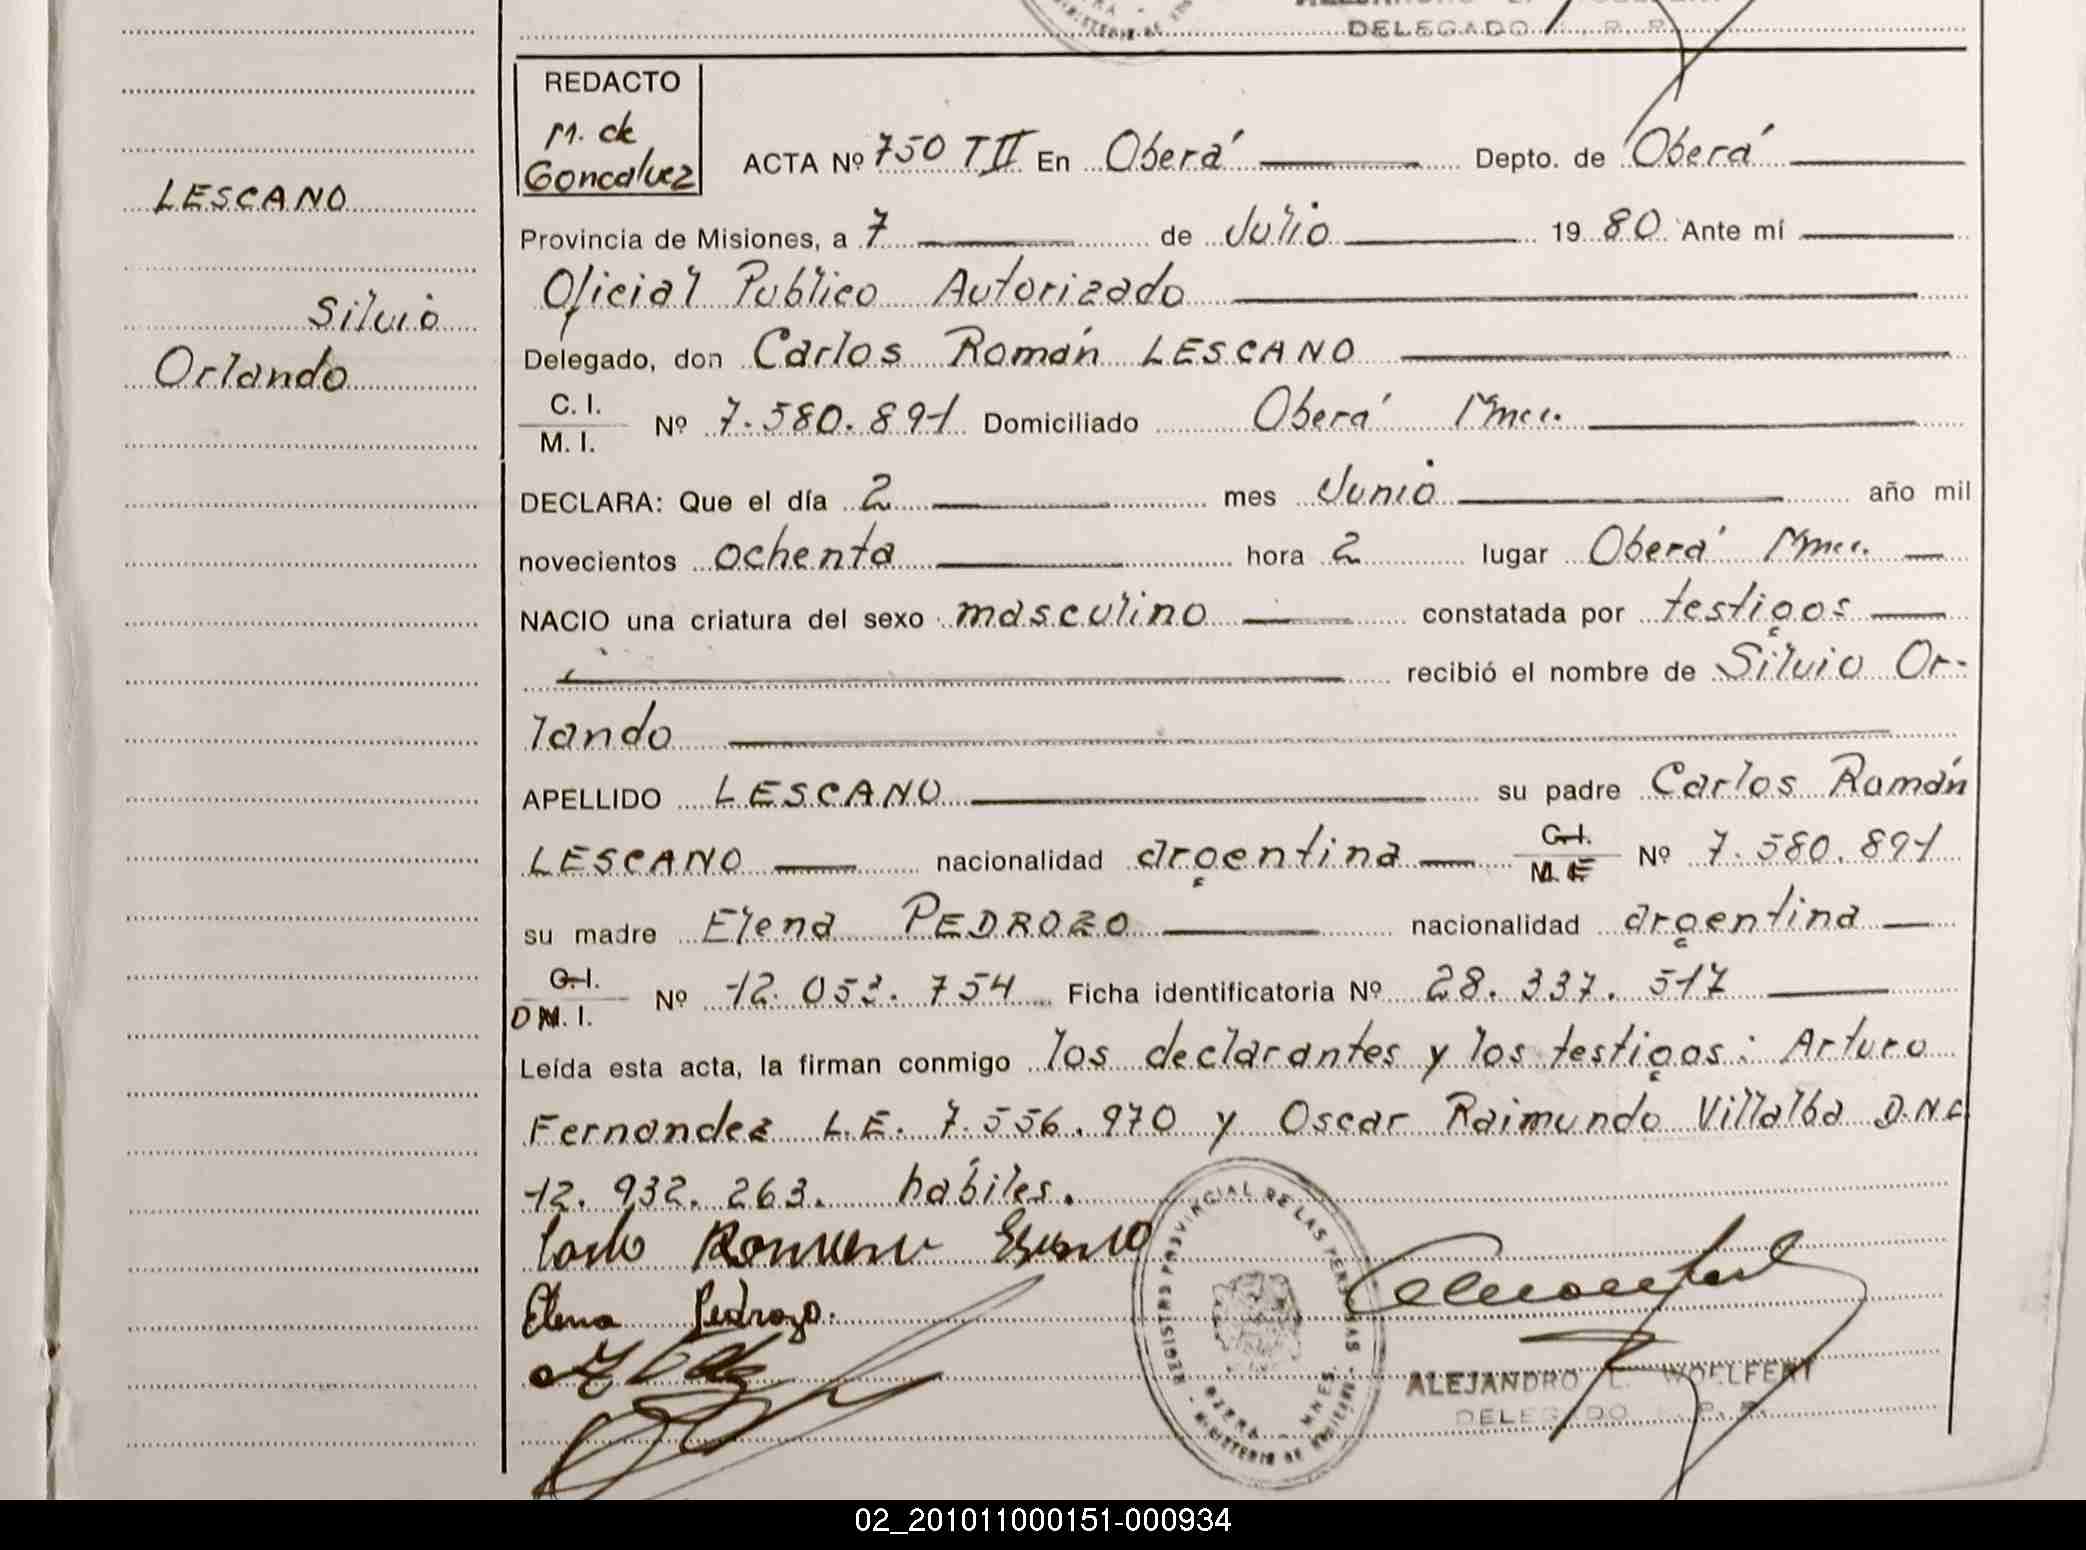 DELEGADO R. P.
REDACTO
M. de
Goncalvez
ACTA Nº 750 T II En Oberá Depto. de Oberá
LESCANO
Provincia de Misiones, a 7 de Julio 1980 Ante mí
Oficial Publico Autorizado
Silvio
Orlando
Delegado, don Carlos Román LESCANO
C. I.
M. I.
Nº 7.580.891 Domiciliado Oberá Mnes.
DECLARA: Que el día 2 mes Junio año mil
novecientos ochenta hora 2 lugar Oberá Mnes.
NACIO una criatura del sexo masculino constatada por testigos
recibió el nombre de Silvio Or-
lando
APELLIDO LESCANO su padre Carlos Román
LESCANO nacionalidad argentina C.I. M.E Nº 7.580.891
su madre Elena PEDROZO nacionalidad argentina
C.I.
D N. I.
Nº 12.053.754 Ficha identificatoria Nº 28.337.517
Leída esta acta, la firman conmigo los declarantes y los testigos: Arturo
Fernandez L.E. 7.556.970 y Oscar Raimundo Villalba D.N.I
12.932.263. hábiles.
Elena Pedrozo.
REGISTRO PROVINCIAL DE LAS PERSONAS
OBERA - MNES.
MINISTERIO DE
ALEJANDRO L. WOELFERT
DELEGADO R. P.
02_201011000151-000934